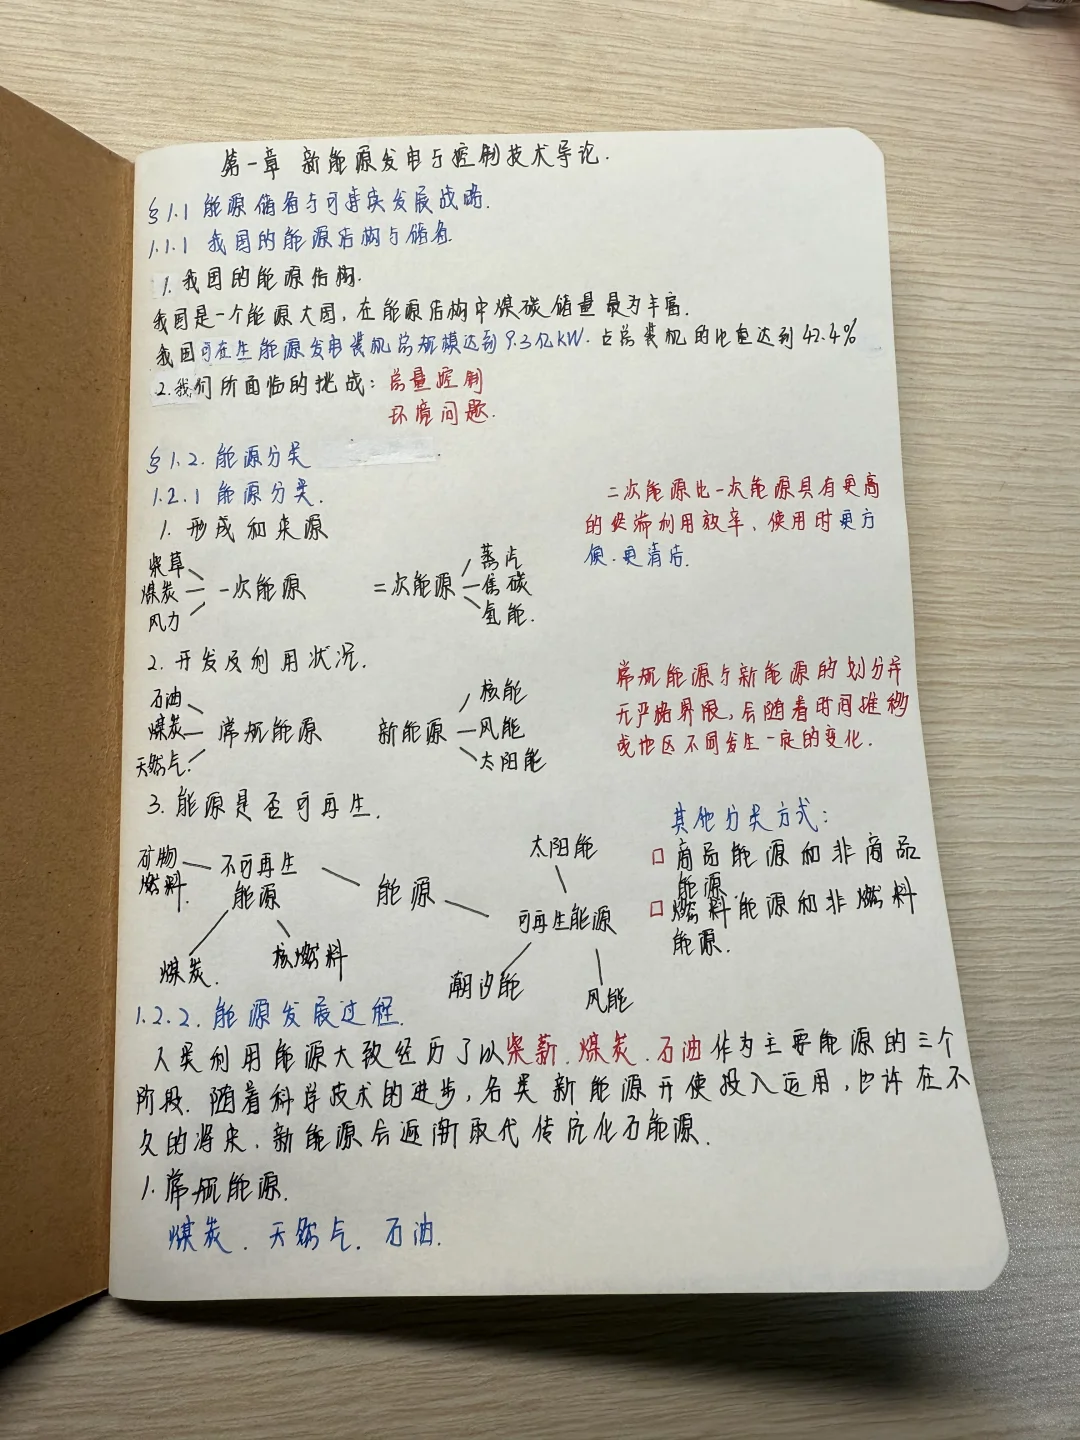 第一章 新能源发电与控制技术导论.
§1.1 能源储备与可持续发展战略.
1.1.1 我国的能源结构与储备.
1. 我国的能源结构.
我国是一个能源大国, 在能源结构中煤碳储量最为丰富.
我国可在生能源发电装机总规模达到9.3亿KW. 占总装机的比重达到42.4%
2.我们所面临的挑战: 总量控制
环境问题.
§1.2. 能源分类
1.2.1 能源分类.
1. 形成和来源
二次能源比一次能源具有更高
的终端利用效率、使用时更方
便.更清洁.
柴草
煤炭 一次能源
风力
蒸汽
二次能源 焦碳
氢能.
2. 开发及利用状况.
石油
煤炭 常规能源
天然气.
核能
新能源 风能
太阳能
常规能源与新能源的划分并
无严格界限, 会随着时间推移
或地区不同发生一定的变化.
3. 能源是否可再生.
矿物
燃料.
不可再生
能源
煤炭.
核燃料
能源
太阳能
可再生能源
潮汐能
风能
其他分类方式:
□ 商品能源和非商品
能源.
□ 燃料能源和非燃料
能源.
1.2.2. 能源发展过程.
人类利用能源大致经历了以柴薪、煤炭、石油作为主要能源的三个
阶段. 随着科学技术的进步, 各类新能源开使投入运用, 也许在不
久的将来, 新能源会逐渐取代传统化石能源.
1. 常规能源.
煤炭、天然气、石油.